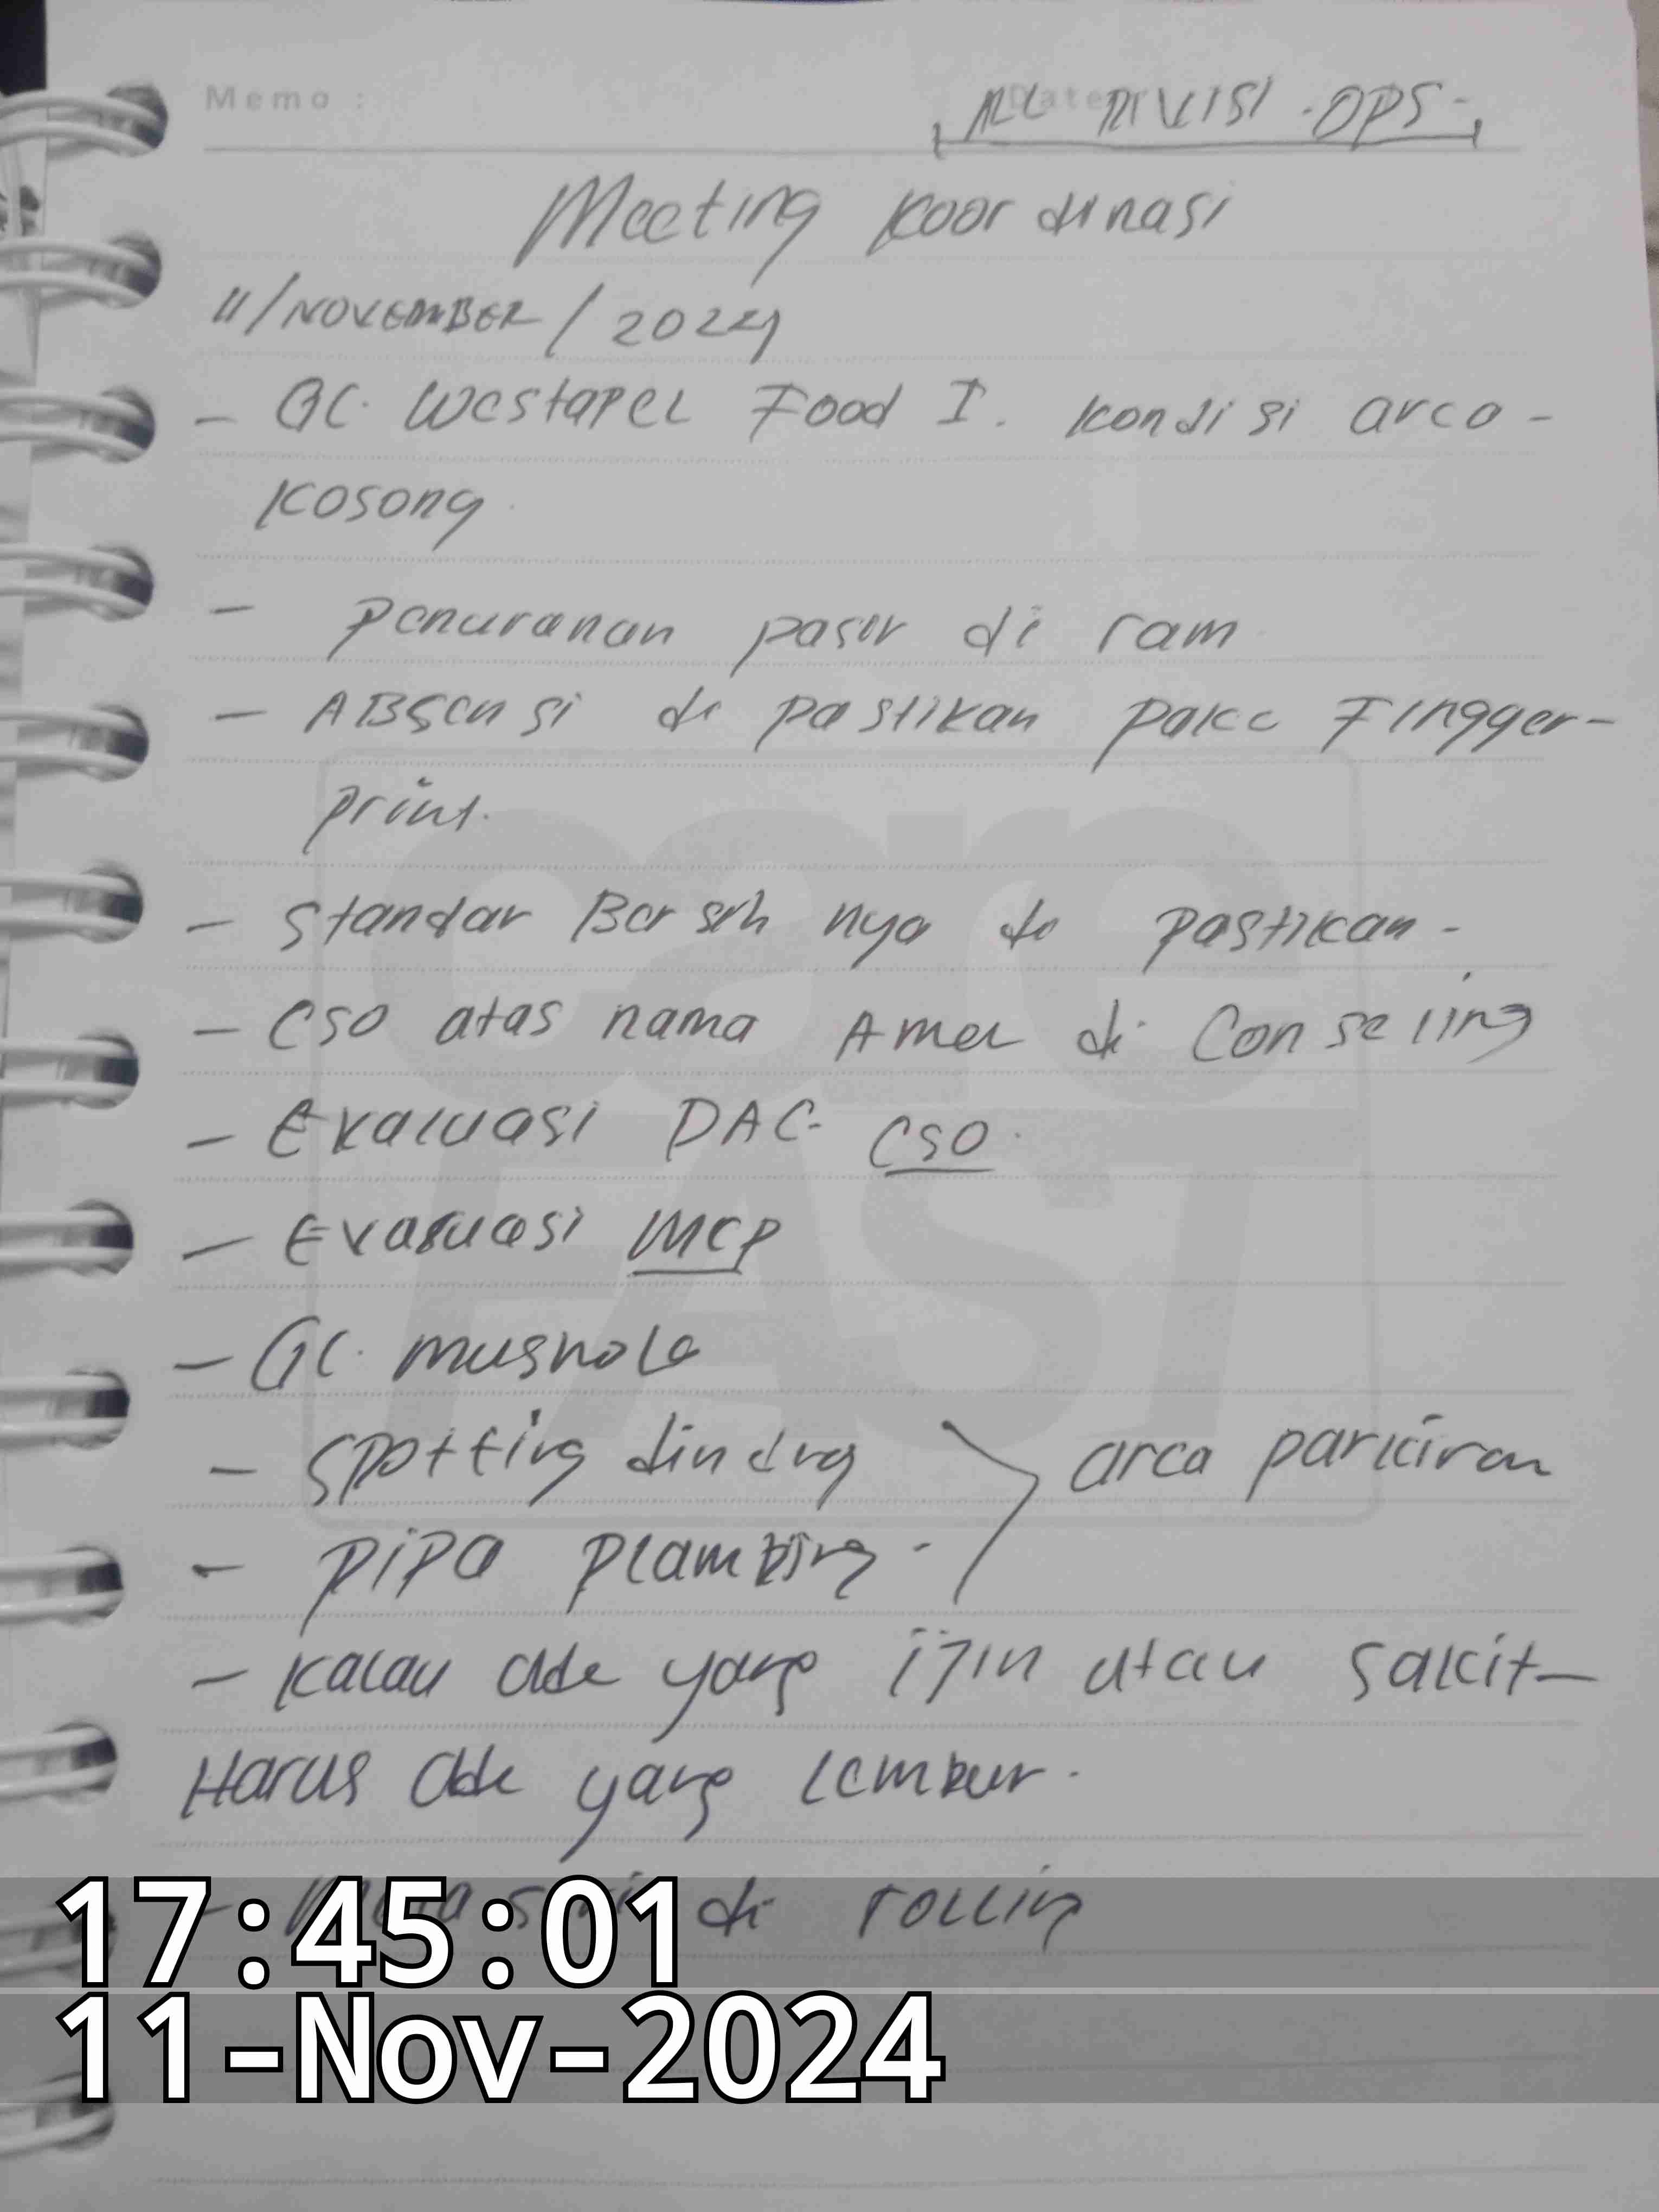 Memo :
Date
ALL DIVISI -OPS-
Meeting koordinasi
11/NOVEMBER/2024
- GC. Westafel Food I. kondisi area -
kosong.
- penuranan pasir di ram
- ABSensi di pastikan pake Fingger-
print.
- Standar Bersih nya di pastikan -
- CSO atas nama Amel di Conseling
- Evaluasi DAC- CSO.
- Evaluasi MCP
- GC. mushola
- Spotting dinding
area parkiran
- pipa plambing -
- kalau ada yang ijin atau sakit-
Harus ada yang lembur.
di rolling
care
FAST
17:45:01
11-Nov-2024